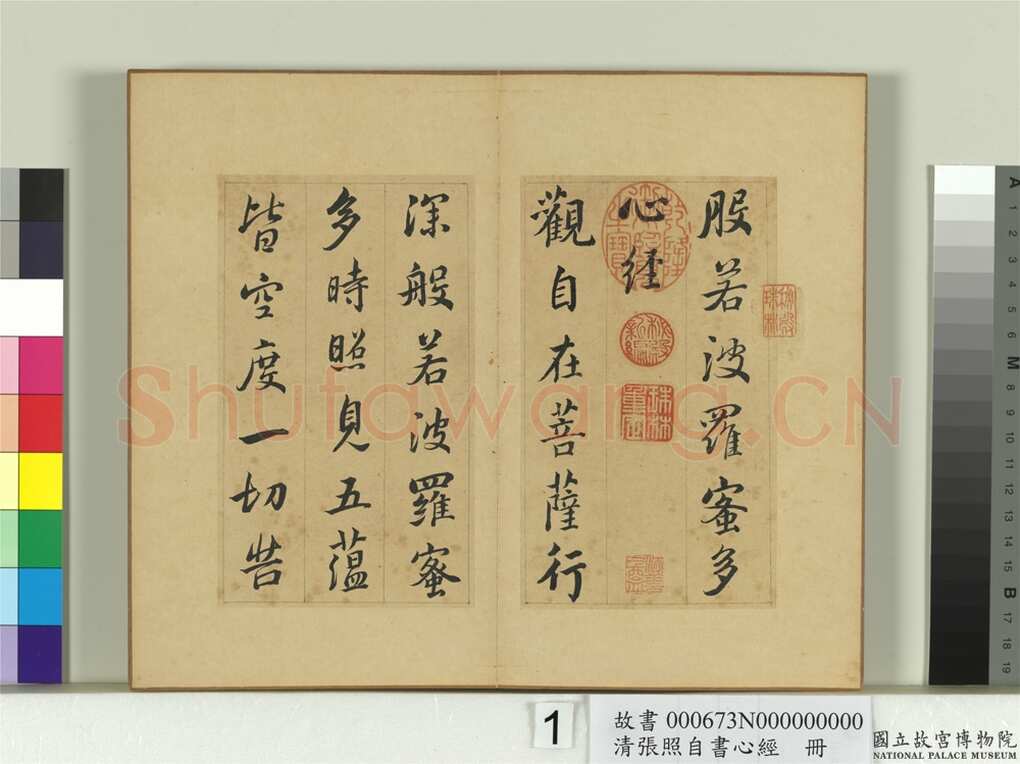 般若波羅蜜多
心經
觀自在菩薩行
深般若波羅蜜
多時照見五蘊
皆空度一切苦
Shufawang.CN
1
故書 000673N000000000
清張照自書心經 冊
國立故宮博物院
NATIONAL PALACE MUSEUM
A 1 2 3 4 5 6 M 8 9 10 11 12 13 14 15 B 17 18 19